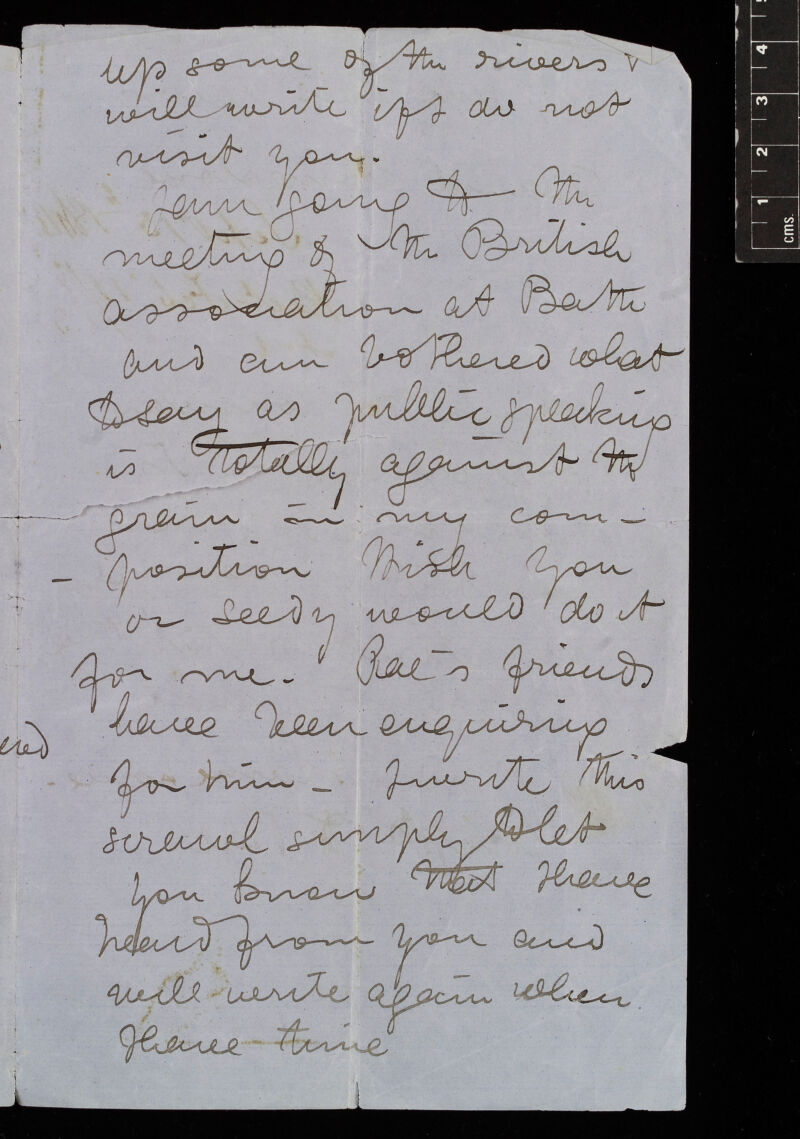 up some of the rivers &
will write if I do not
visit you.
I am going to the
meeting of the British
association at Bath
and am bothered what
to say as public speaking
is totally against the
grain in my com-
-position Wish you
or Seedy would do it
for me. Rae's friends
have been enquiring
for him - I write this
scrawl simply to let
you know that I have
heard from you and
will write again when
I have time
ered
cms.
1
2
3
4
5